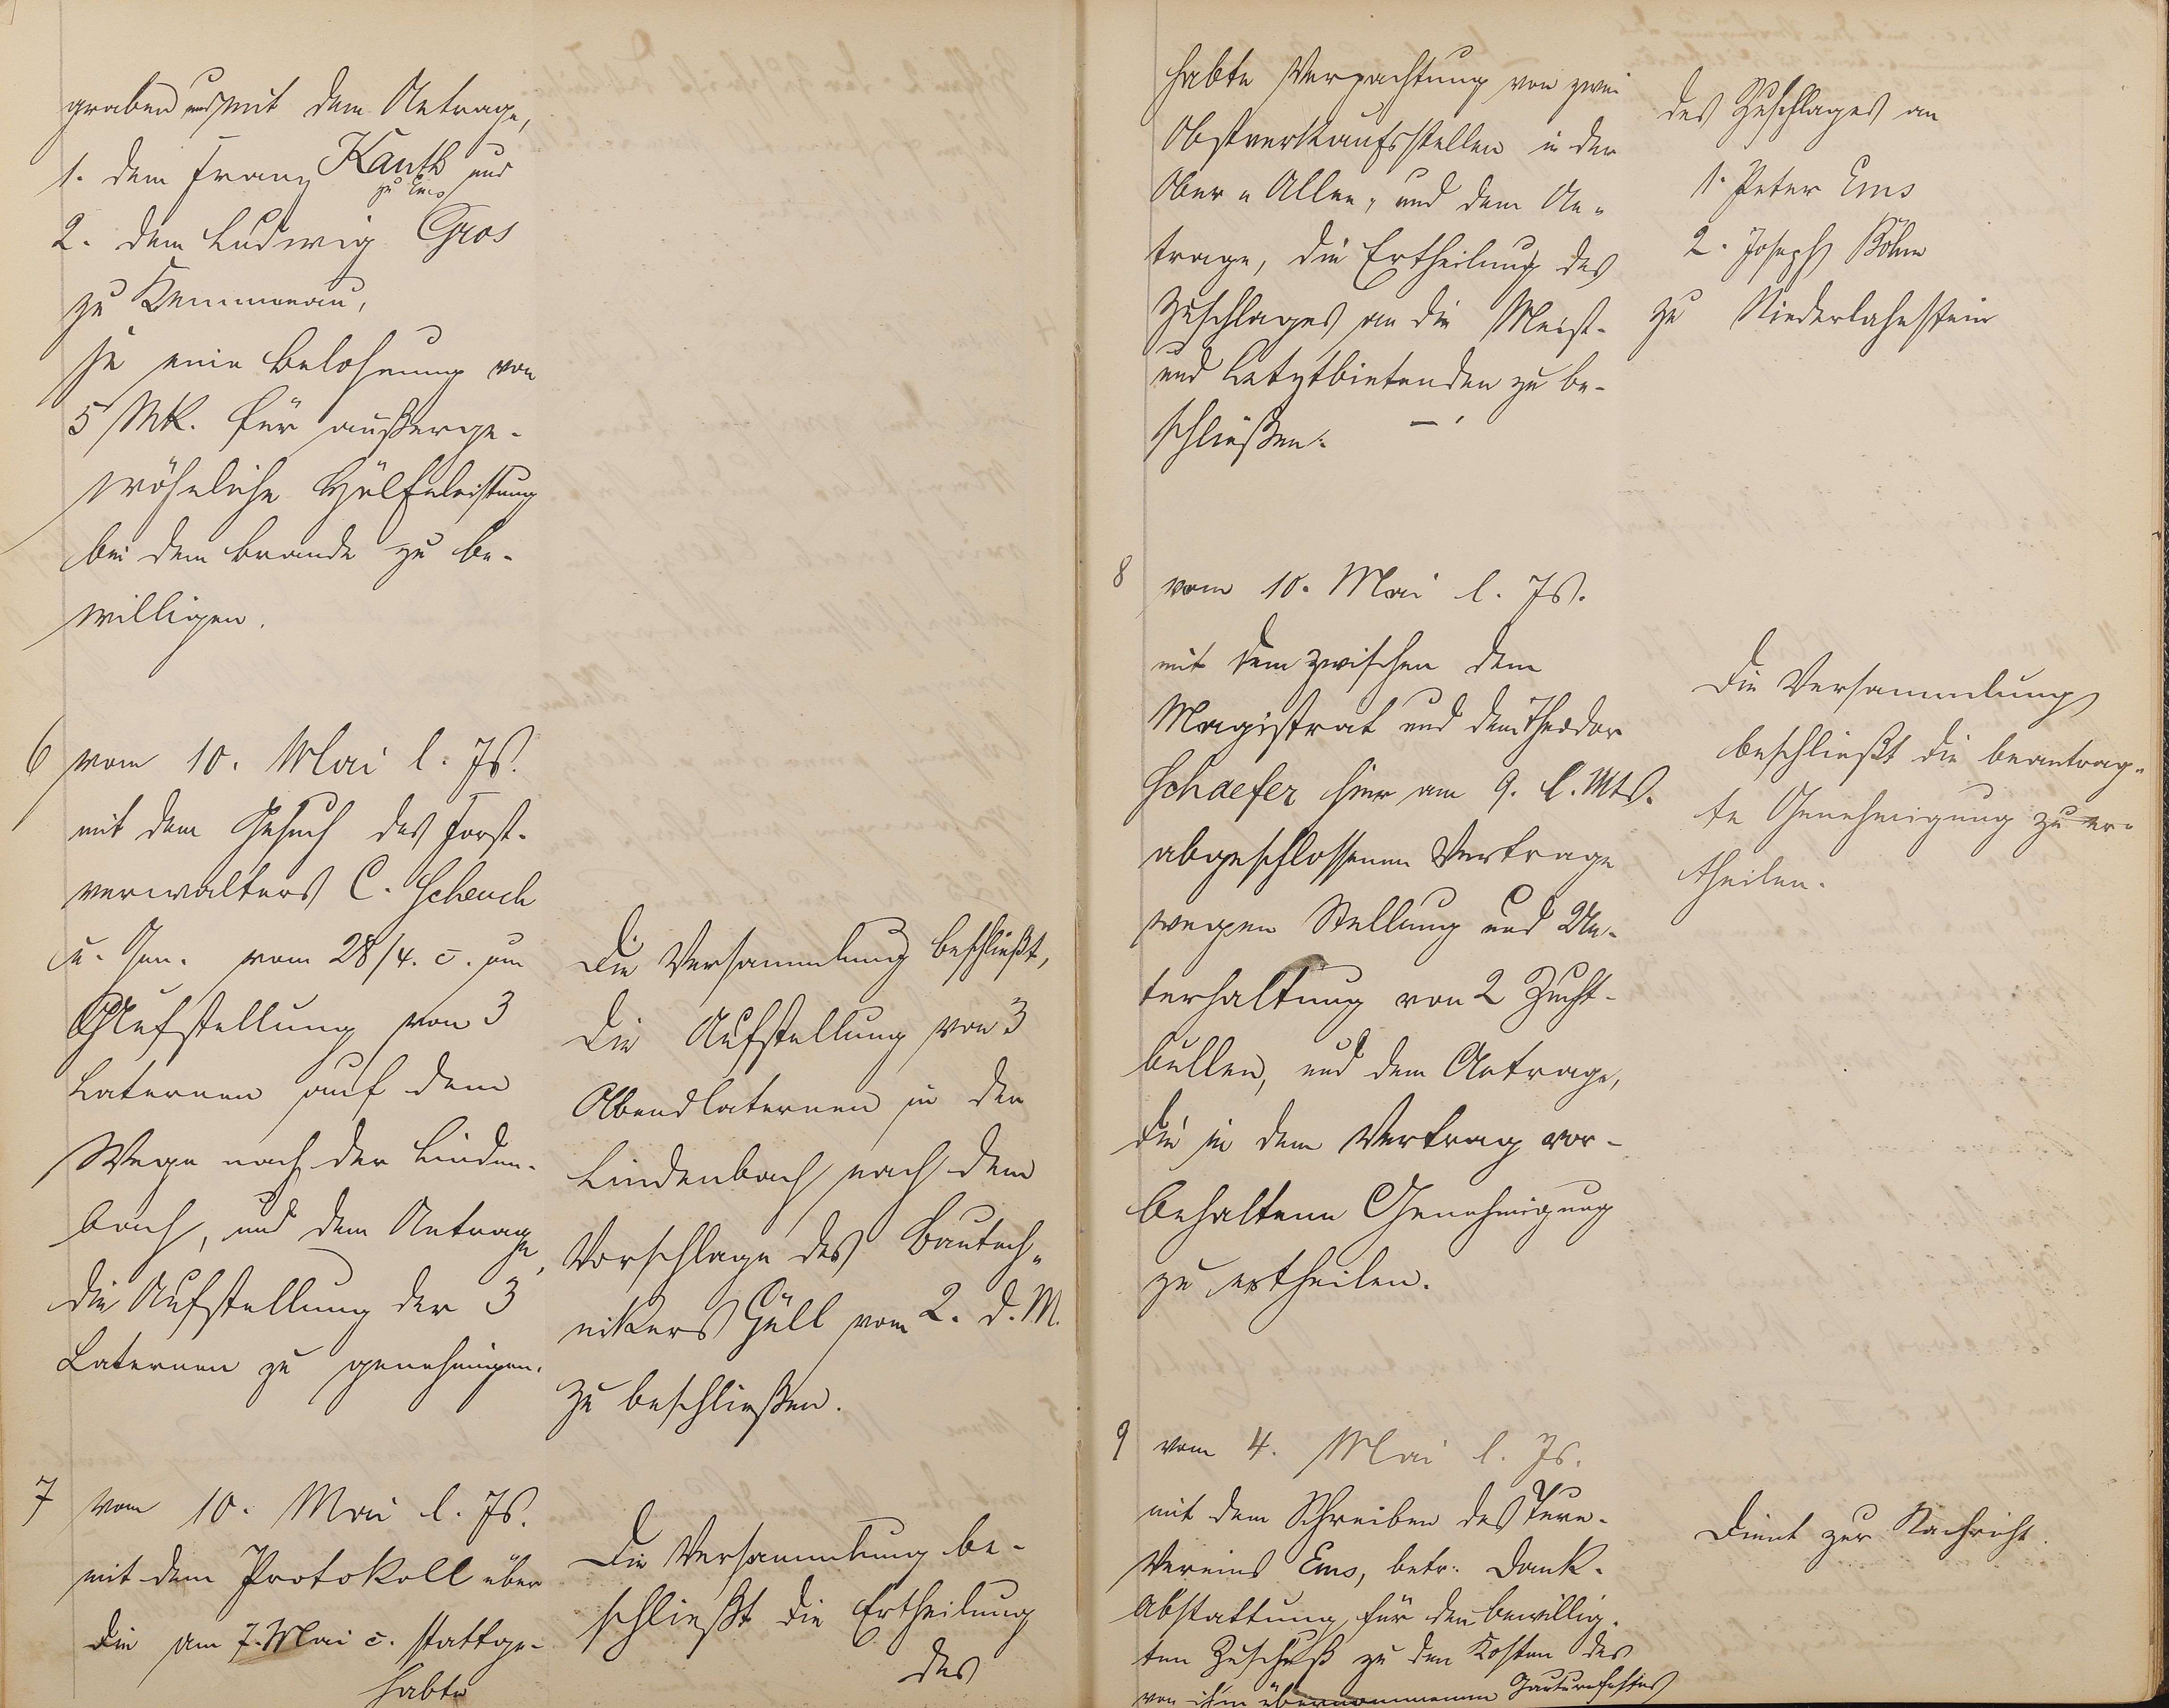 graben und mit dem Antrage,
1. dem Franz Kauth und
zu Ems
2. dem Ludwig Gros
zu Kemmenau,
je eine Belohnung von
5 Mk. für außerge-
wöhnliche Hülfeleistung
bei dem Brande zu be-
willigen.
6 vom 10. Mai l. Js.
mit dem Gesuch des Forst-
verwalters C. Scheuch
u. Gen. vom 28/4. c. um
Aufstellung von 3
Laternen auf dem
Wege nach der Linden-
bach, und dem Antrage,
die Aufstellung der 3
Laternen zu genehmigen.
Die Versammlung beschließt,
die Aufstellung von 3
Abendlaternen in der
Lindenbach nach dem
Vorschlage des Bautech-
nikers Güll vom 2. d. M.
zu beschließen.
7 vom 10. Mai l. Js.
mit dem Protokoll über
die am 7. Mai c. stattge-
habte
Die Versammlung be-
schließt die Ertheilung
des
habte Verpachtung von zwei
Obstverkaufsstellen in der
Ober-Allee, und dem An-
trage, die Ertheilung des
Zuschlages an die Meist-
und Letztbietenden zu be-
schließen.
des Zuschlages an
1. Peter Ems
2. Joseph Böhm
zu Niederlahnstein
8 vom 10. Mai l. Js.
mit dem zwischen dem
Magistrat und dem Theodor
Schaefer hier am 9. l. Mts.
abgeschlossenen Vertrage
wegen Stellung und Un-
terhaltung von 2 Zucht-
bullen, und dem Antrage,
die in dem Vertrag vor-
behaltene Genehmigung
zu ertheilen.
Die Versammlung
beschließt die beantrag-
te Genehmigung zu er-
theilen.
9 vom 4. Mai l. Js.
mit dem Schreiben des Turn-
Vereins Ems, betr. Dank-
Abstattung für den bewillig-
ten Zuschuß zu den Kosten des
von ihm übernommenen Gauturnfestes
Dient zur Nachricht.